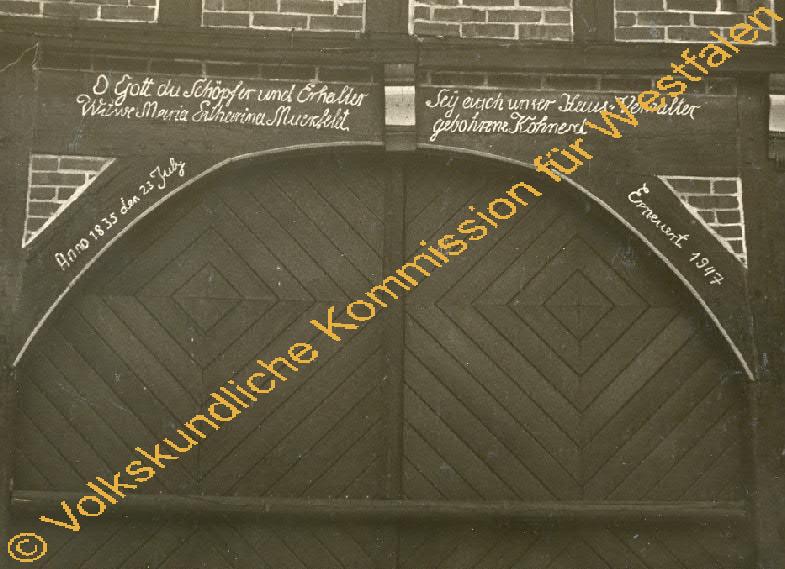 O Gott du Schöpfer und Erhalter
Witwe Maria Catharina Muerfeld
Sey auch unser Haus-Verwalter
gebohrene Köhnerd
Anno 1835 den 23 July
Erneuert 1947
© Volkskundliche Kommission für Westfalen